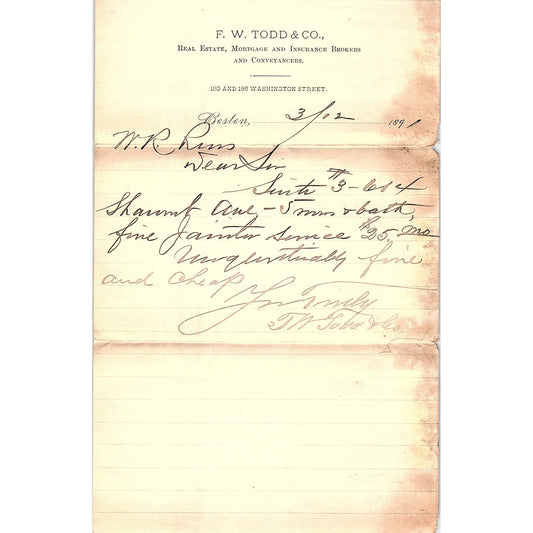 F. W. TODD & CO.,
REAL ESTATE, MORTGAGE AND INSURANCE BROKERS
AND CONVEYANCERS.
180 AND 186 WASHINGTON STREET.
Boston, 3/02 1891
W. R.
Dear Sir
Suite #3 - 604
Shawmut Ave - 5 rms & bath,
fine janitor service $25. mo
Unquestionably fine
and cheap
Yrs Truly
F W Todd & Co